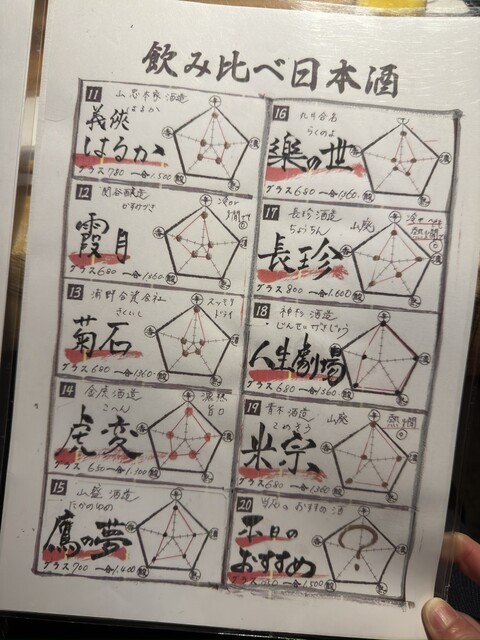 飲み比べ日本酒
11 山忠本家酒造
はるか
義侠
はるか
グラス780 一合1.500
12 関谷醸造
かすみづき
冷or
燗で
霞月
グラス680 一合1.360
13 浦野合資会社
きくいし
スッキリ
ドライ
菊石
グラス680 一合1360
14 金虎酒造
こへん
濃綇
旨口
虎変
グラス650 一合1.300
15 山盛酒造
たかのゆめ
鷹の夢
グラス700 一合1.400
16 丸井合名
らくのよ
楽の世
グラス680 一合1360
17 長珍酒造
ちょうちん
山廃
長珍
グラス800 一合1.600
18 神杉酒造
じんせいげきじょう
人生劇場
グラス680 一合1360
19 青木酒造
こめそう
山廃
熱燗
米宗
グラス680 一合1360
20 おすすめ酒
本日の
おすすめ